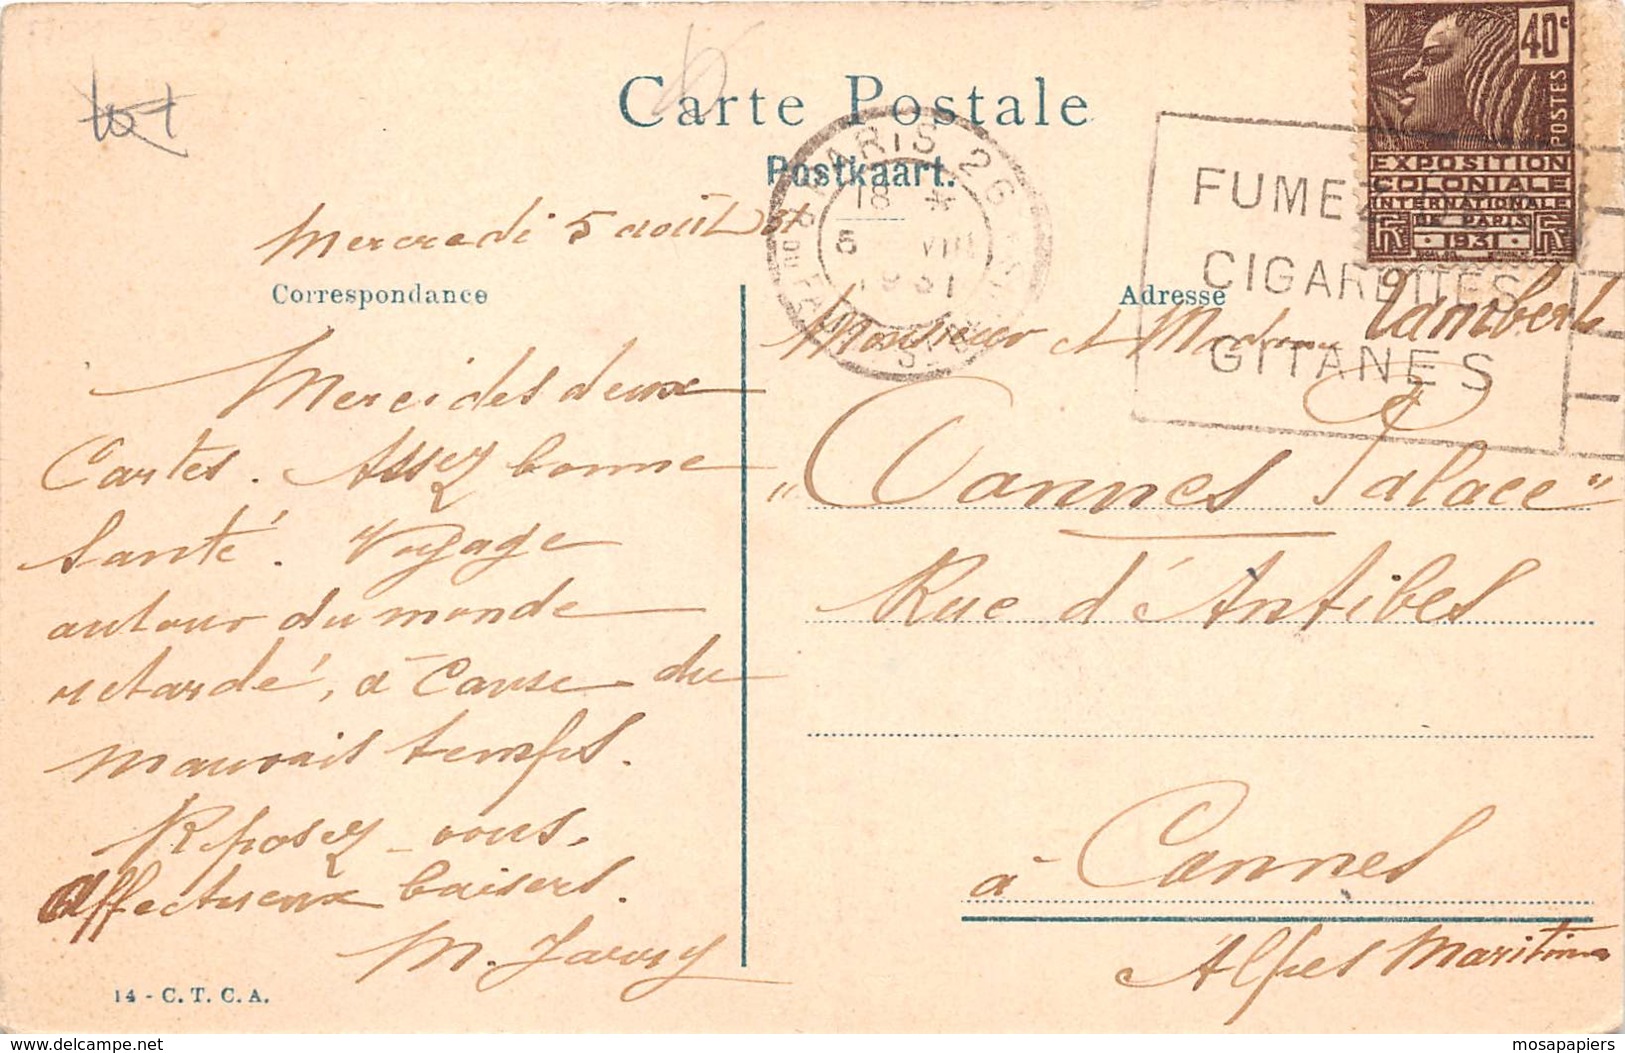 Carte Postale
Postkaart.
40c
POSTES
EXPOSITION
COLONIALE
INTERNATIONALE
DE PARIS
1931
PARIS 26
18 *
5 VIII
1931
FUMEZ
CIGARETTES
GITANES
Mercredi 5 août 31
Correspondance
Merci des deux
Cartes. Assez bonne
Santé. Voyage
autour du monde
retardé, à Cause du
mauvais temps.
Reposez-vous.
affectueux baisers.
M.
14 - C. T. C. A.
Adresse
Monsieur et Madame Lambert
"Cannes Palace"
Rue d'Antibes
à Cannes
Alpes Maritimes
www.delcampe.net
mosapapiers